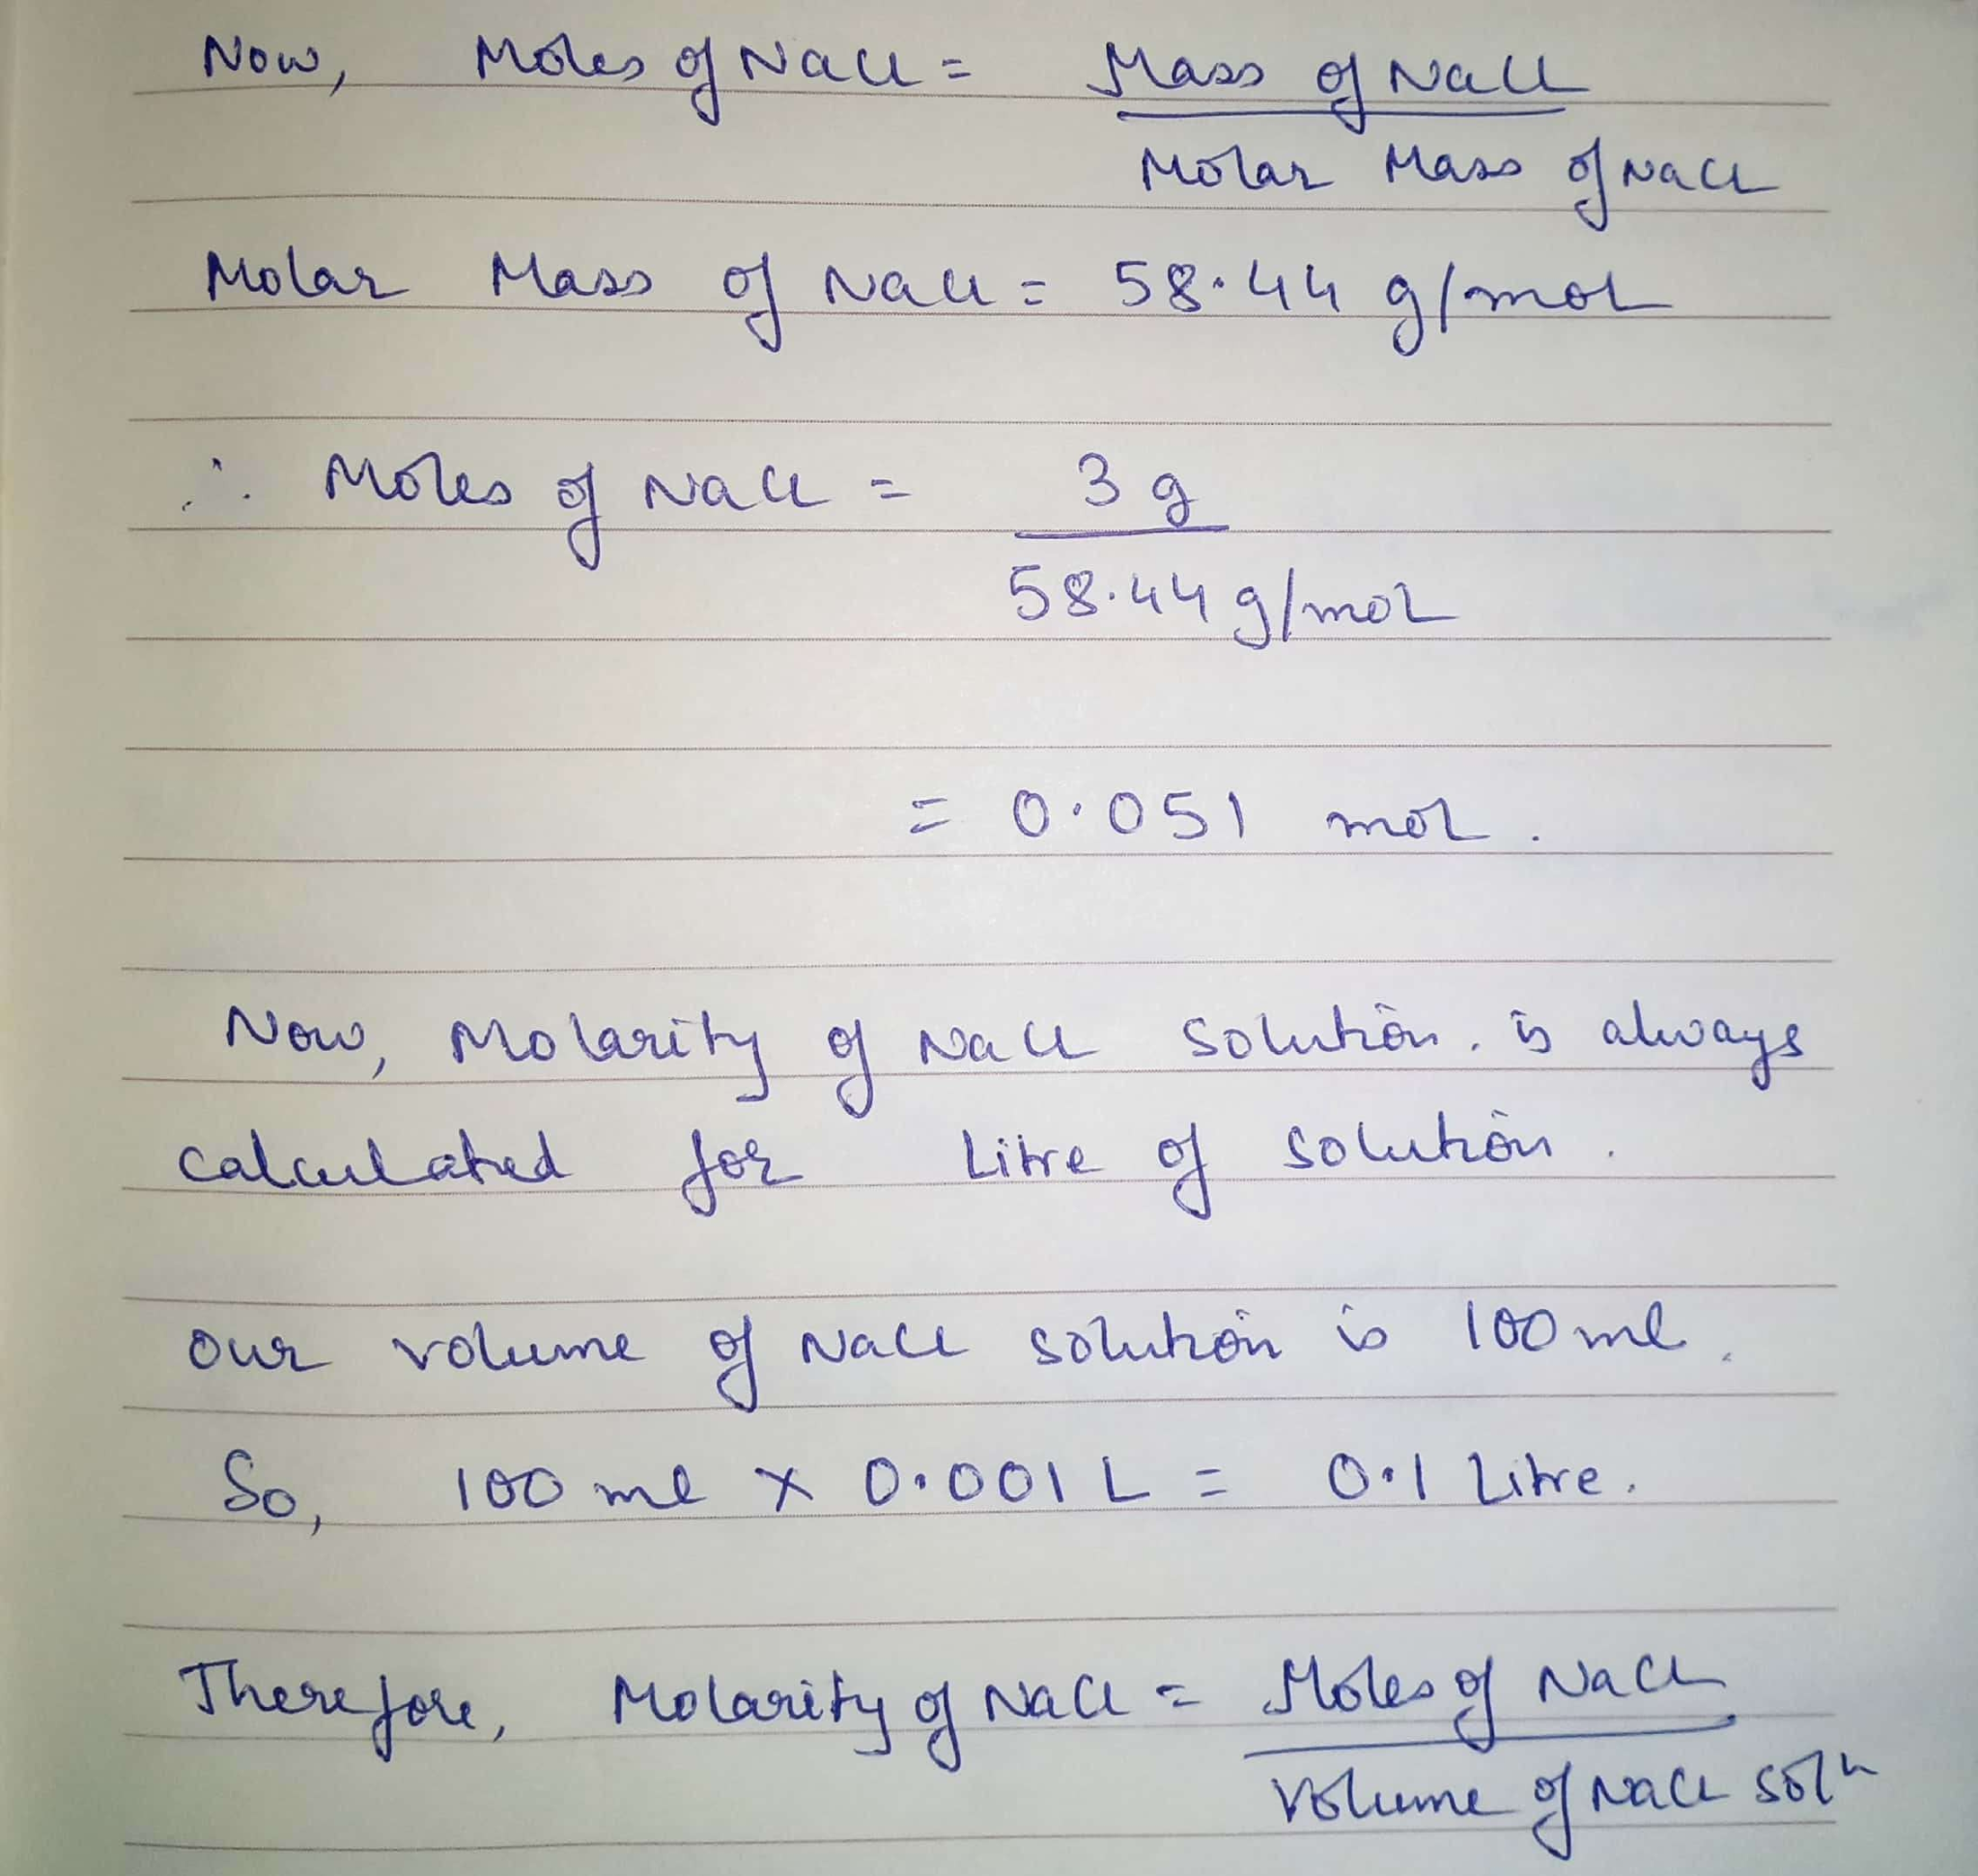 Now, Moles of NaCl = Mass of NaCl
Molar Mass of NaCl
Molar Mass of NaCl = 58.44 g/mol
∴ Moles of NaCl = 3 g
58.44 g/mol
= 0.051 mol.
Now, Molarity of NaCl solution. is always
calculated for Litre of solution.
Our volume of NaCl solution is 100 ml.
So, 100 ml × 0.001 L = 0.1 Litre.
Therefore, Molarity of NaCl = Moles of NaCl
Volume of NaCl solⁿ